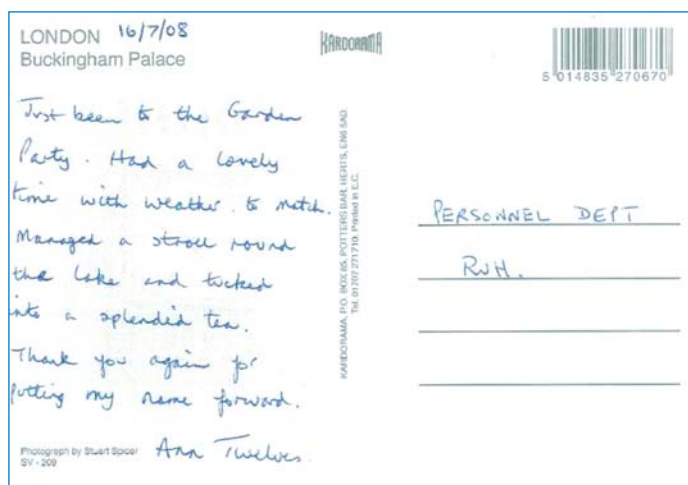 LONDON 16/7/08
Buckingham Palace
KARDORAMA
5 014835 270670
Just been to the Garden
Party. Had a lovely
time with weather to match.
Managed a stroll round
the lake and tucked
into a splendid tea.
Thank you again for
putting my name forward.
Ann Twelves
Photograph by Stuart Spicer
SV - 209
KARDORAMA, P.O. BOX 85, POTTERS BAR, HERTS, EN6 5AD.
Tel. 01707 271710. Printed in E.C.
PERSONNEL DEPT
RUH.